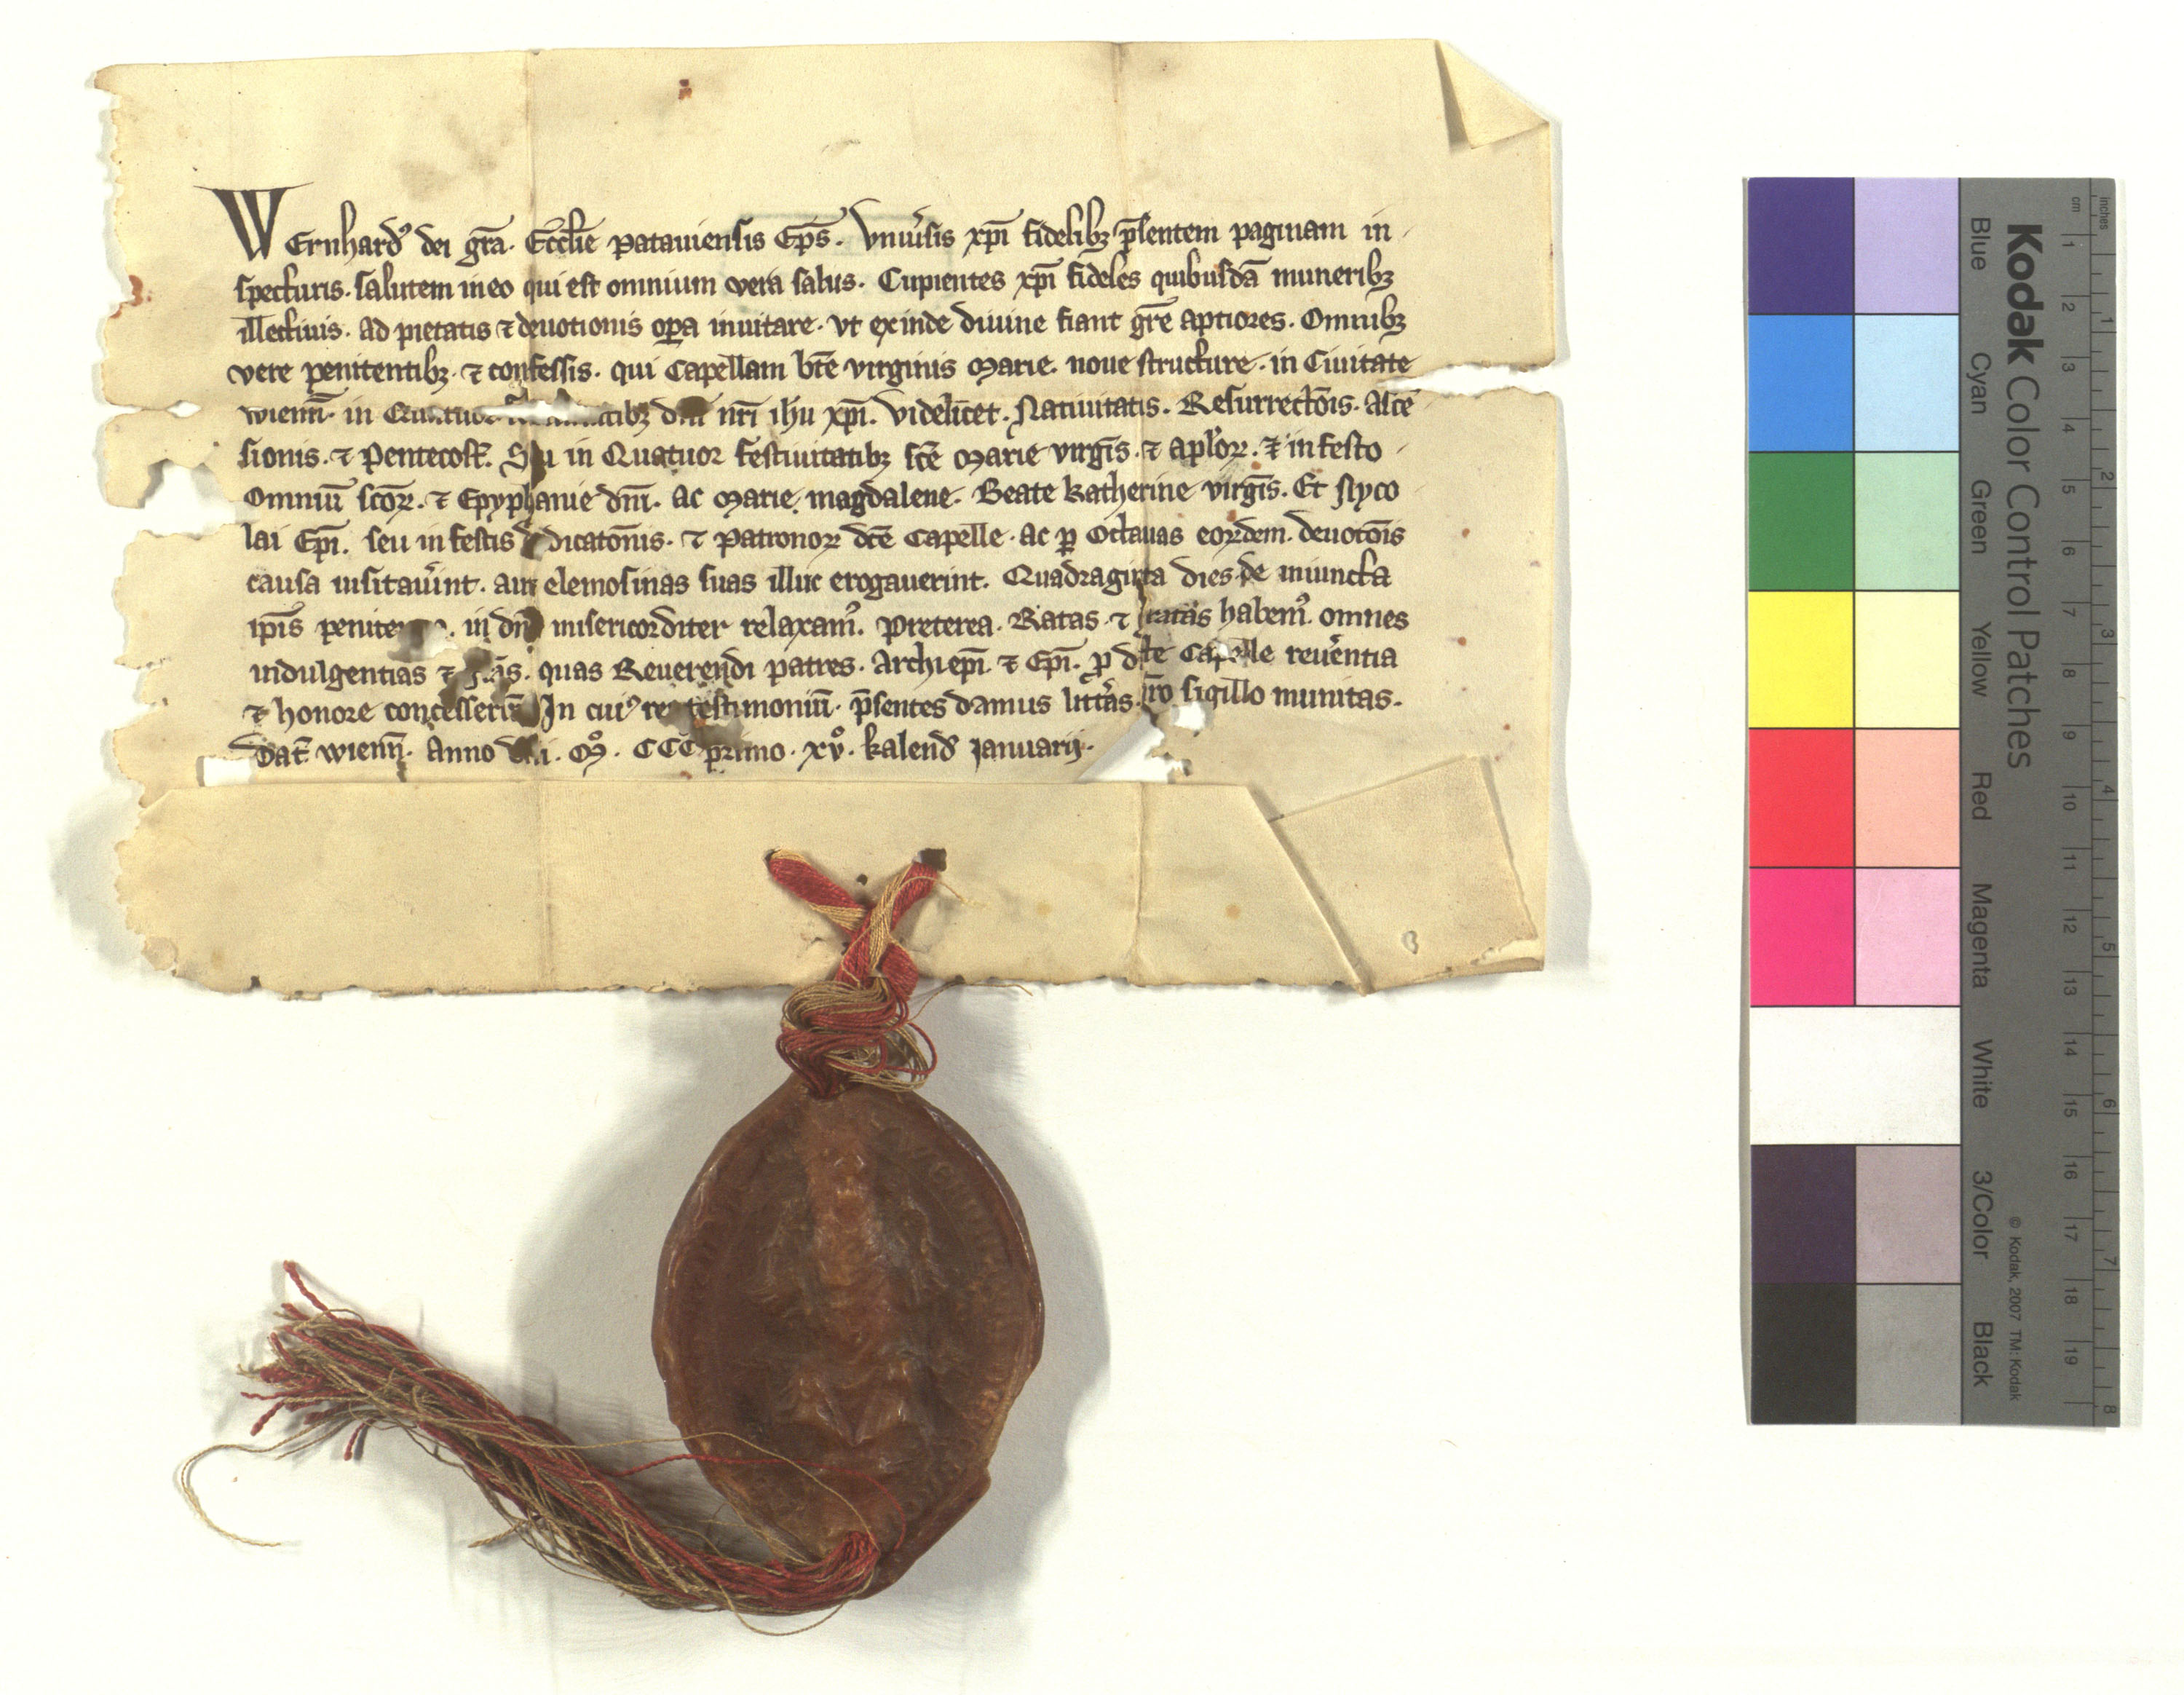 Wernhardꝰ dei gr̄a. Eccl̄ie Patauiensis Ep̄s. Vniu͛sis xp̄i fidelibꝫ p̄sentem paginam in
specturis. salutem in eo qui est omnium vera salus. Cupientes xp̄i fideles quibusdā muneribꝫ
illectiuis. ad pietatis ⁊ deuotionis oꝑa inuitare. vt exinde diuine fiant gr̄e aptiores. Omnibꝫ
vere penitentibꝫ. ⁊ confessis. qui Capellam bt̄e virginis Marie. noue structure. in Ciuitate
wienn̄. in nr̄i ihu xp̄i. videlicet. Natiuitatis. Resurrectōis. Asce
sionis. ⁊ Pentecost. in Quatuor festiuitatibꝫ sc̄e Marie virgīs. ⁊ apl̓oꝝ. ⁊ in festo
Omniū sc̄oꝝ. ⁊ Epyphanie dn̄i. ac Marie magdalene. Beate Katherine virgīs. Et Nyco
lai Ep̄i. seu in festis dicatōnis. ⁊ Patronoꝝ dc̄e Capelle. ac ꝑ Octauas eoꝝdem. deuotōis
causa uisitau͛int. aut elemosinas suas illuc erogauerint. Quadraginta dies de iniuncta
ip̄is in dn̄o misericorditer relaxamꝰ. Preterea. Ratas ⁊ habemꝰ. omnes
indulgentias ⁊ quas Reuerendi patres. Archiep̄i. ⁊ Ep̄i. ꝓ Capelle reu͛entia
⁊ honore In cuiꝰ rei testimoniū. p̄sentes damus litt͛as. sigillo munitas.
Dat̄ wienn̄. Anno Mͦ. CCCͦ primo. xvͦ. kalend̓ Januarij.
Kodak Color Control Patches
Blue Cyan Green Yellow Red Magenta White 3/Color Black
© Kodak, 2007 TM: Kodak
inches 1 2 3 4 5 6 7 8
cm 1 2 3 4 5 6 7 8 9 10 11 12 13 14 15 16 17 18 19